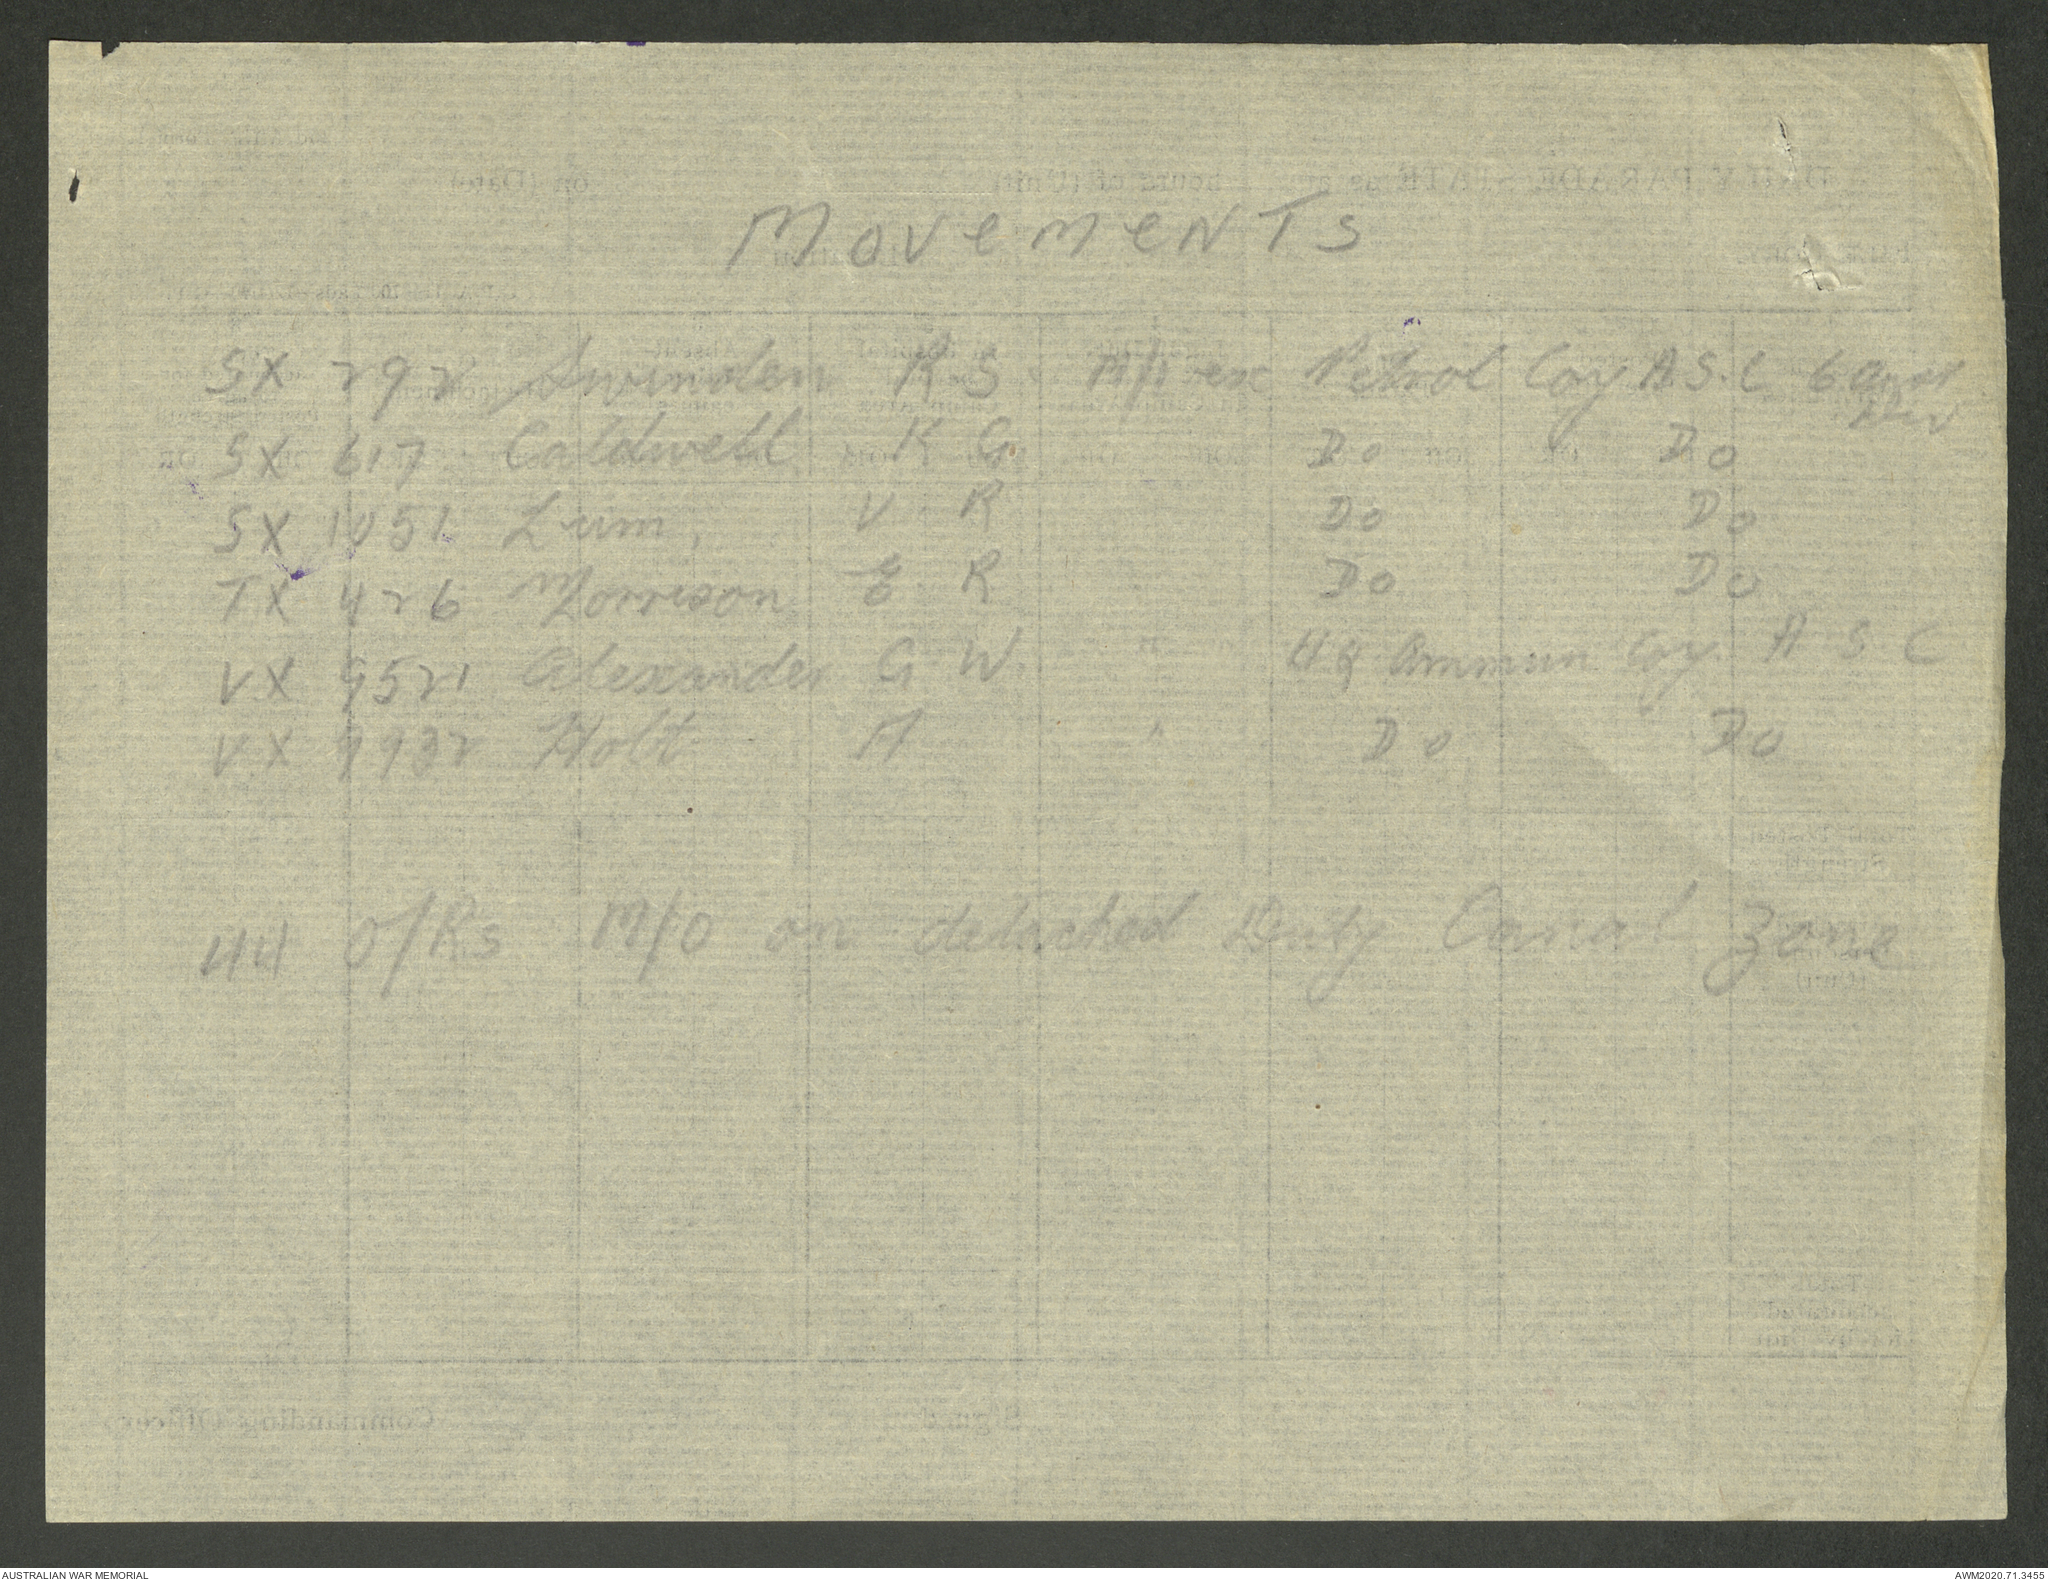 MOVEMENTS
SX 292 Swinden R S M/I ex Petrol Coy A.S.C 6 Aust
Div
SX 617 Caldwell K G. Do Do
SX 1051 V R Do Do
TX 426 Morrison E R Do Do
VX 9521 Alexander G W. " HQ Ammun Coy. A S C
VX 9932 Holt A " Do Do
44 O/Rs M/O on detached Duty Canal Zone
AUSTRALIAN WAR MEMORIAL
AWM2020.71.3455